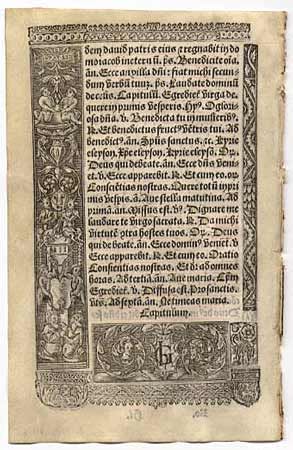 dem dauid patris eius ⁊ regnabit in do
mo iacob in eternū. p̄s. Benedicite oīa.
ān. Ecce ancilla dn̄i: fiat michi secun
dum verbū tuū. p̄s. Laudate dominū
de celis. Capitulū. Egrediet᷑ virga de
quere in primis vesperis. Hyꝰ. O glorio
sa dn̄a. v. Benedicta tu in mulieribꝰ.
R. Et benedictus fructꝰ vētris tui. Ad
benedictꝰ. ān. Spūs sanctus. ⁊c. Kyrie
eleyson. Xp̄e eleyson. Kyrie eleysō. Or̄.
Deus qui de beate. ān. Ecce dn̄s veni
et. v. Ecce apparebit. R. Et cum eo. or̄.
Consciētias nostras. Quere totū in pri
mis vesp̄. ān. Aue stella matutina. Ad
primā. ān. Missus est. v. Dignare me
laudare te virgo sacrata. R. Da michi
virtutē ↄtra hostes tuos. Or̄. Deus
qui de beate. ān. Ecce dominꝰ veniet. v.
Ecce apparebit. R. Et cum eo. Oratio
Conscientias nostras. Et dr̄ ad omnes
horas. Ad tertiā. ān. Aue maria. Cap̄m
Egrediet᷑. v. Diffusa est. Pro sanctis.
Ad sextā. ān. Ne timeas maria.
Capitulum.
G